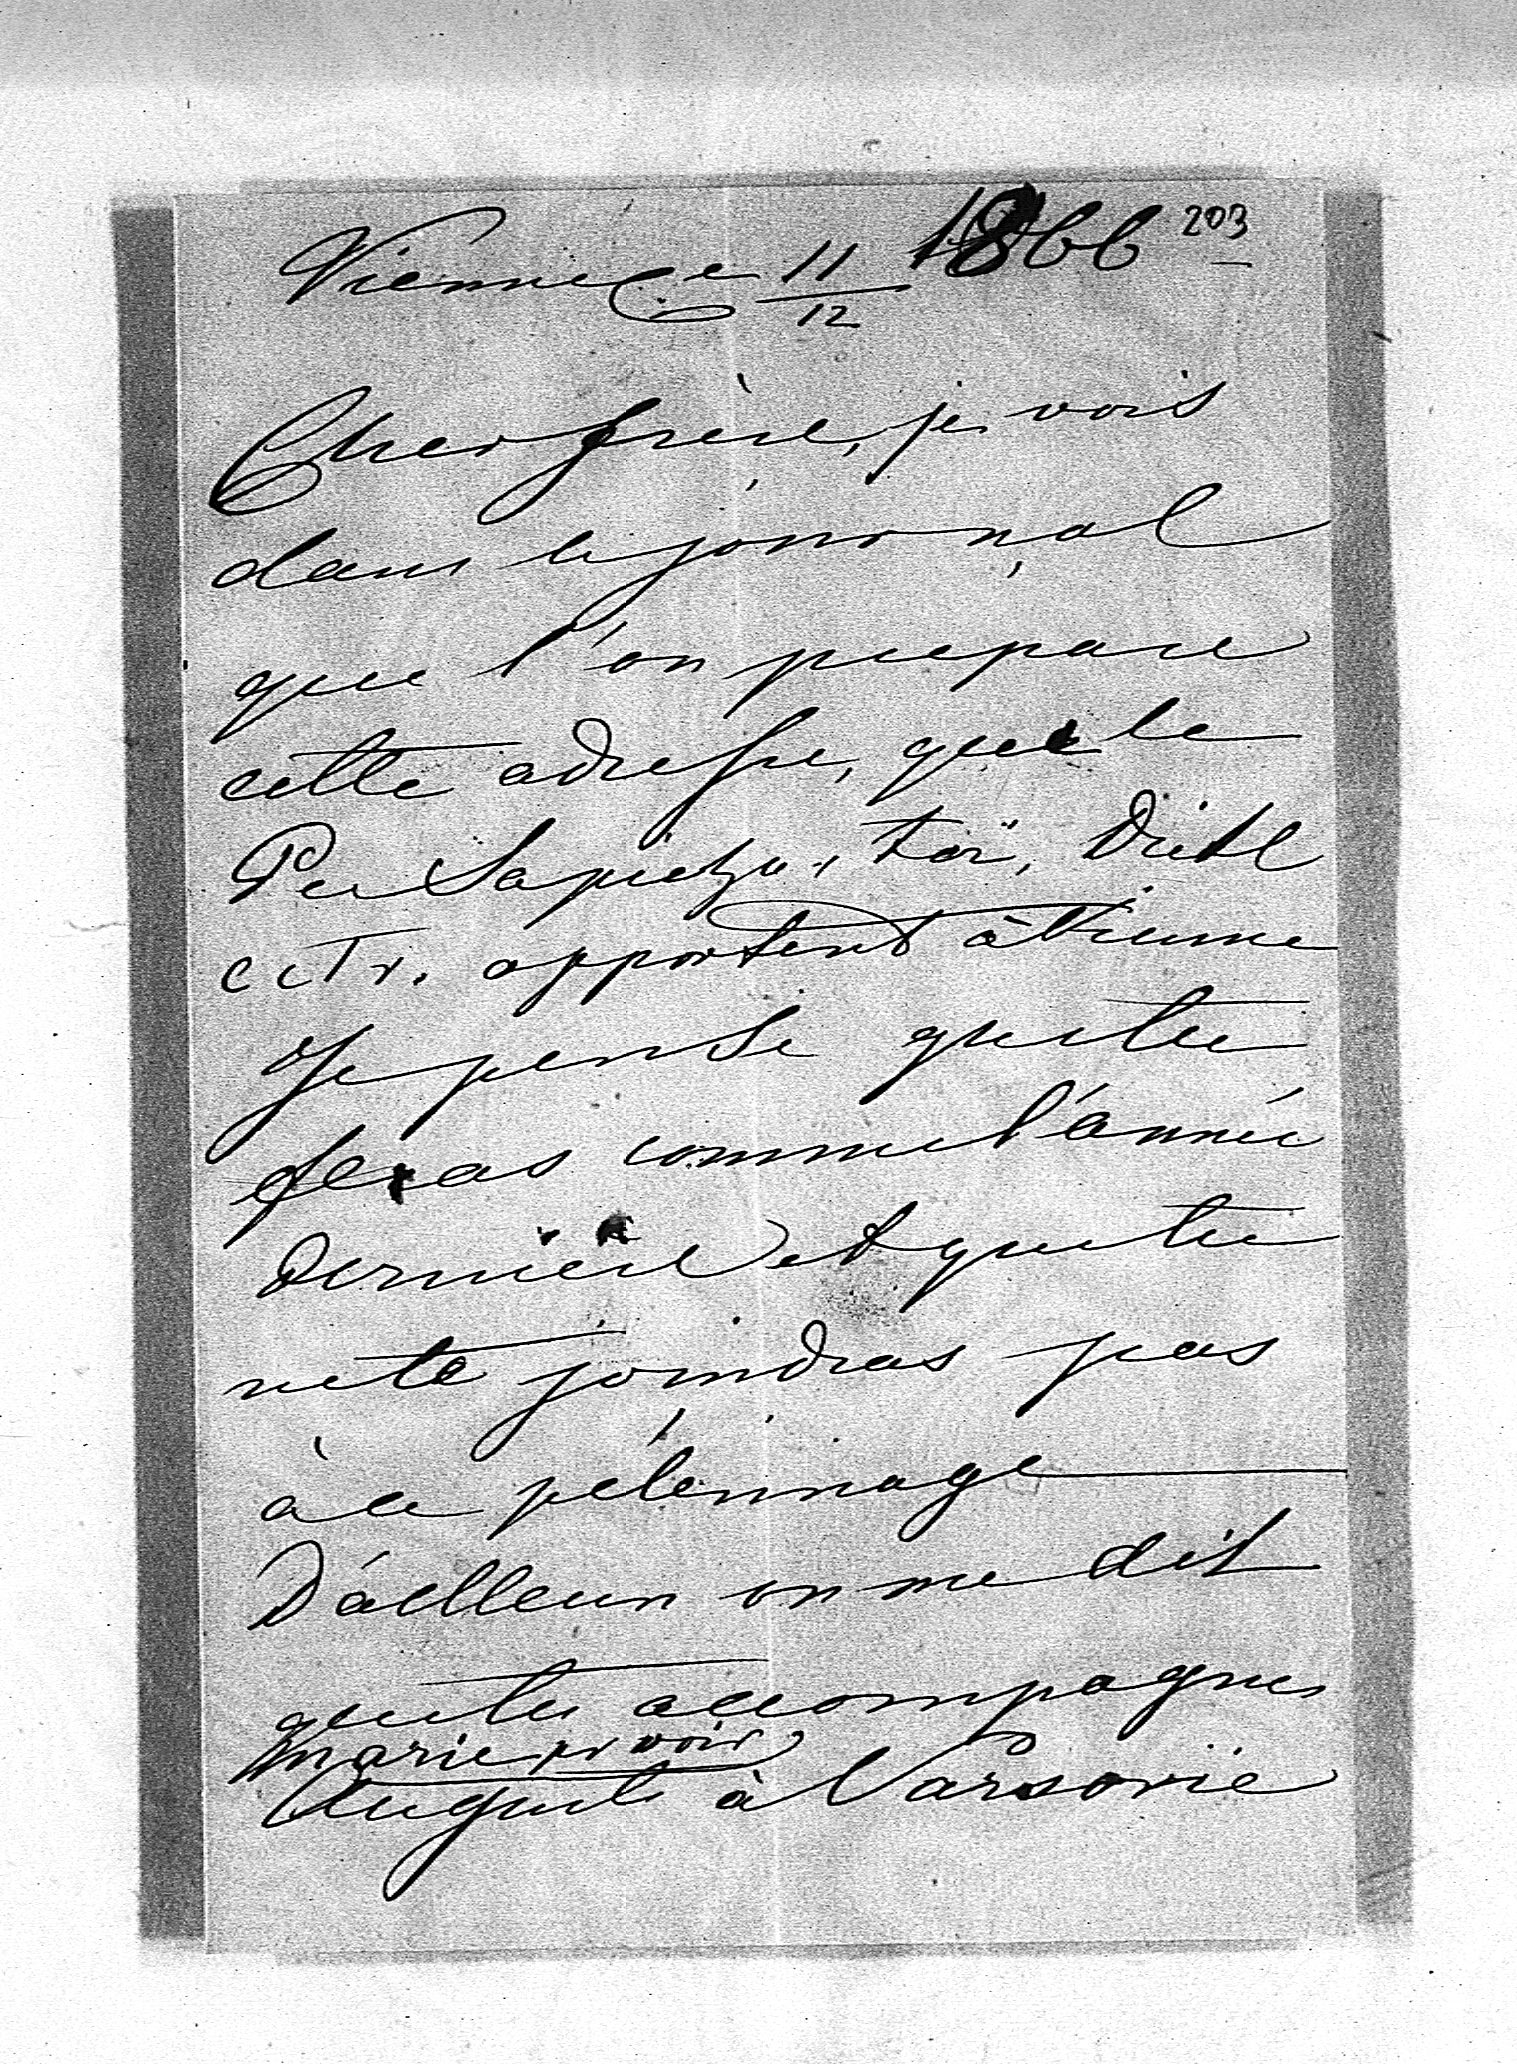 203
Vienne ce 11/12 1866
Cher frère, je vois
dans le journal
que l'on prepare
cette adresse, que le
Pce Sapieha, toi, Dietl
cctr. apportent à Vienne
Je pense que tu
feras comme l'année
derniere et que tu
ne te joindras pas
à ce pélérinage
D'ailleur on me dit
que tu accompagnes
Marie pr voir
Auguste à Varsovie